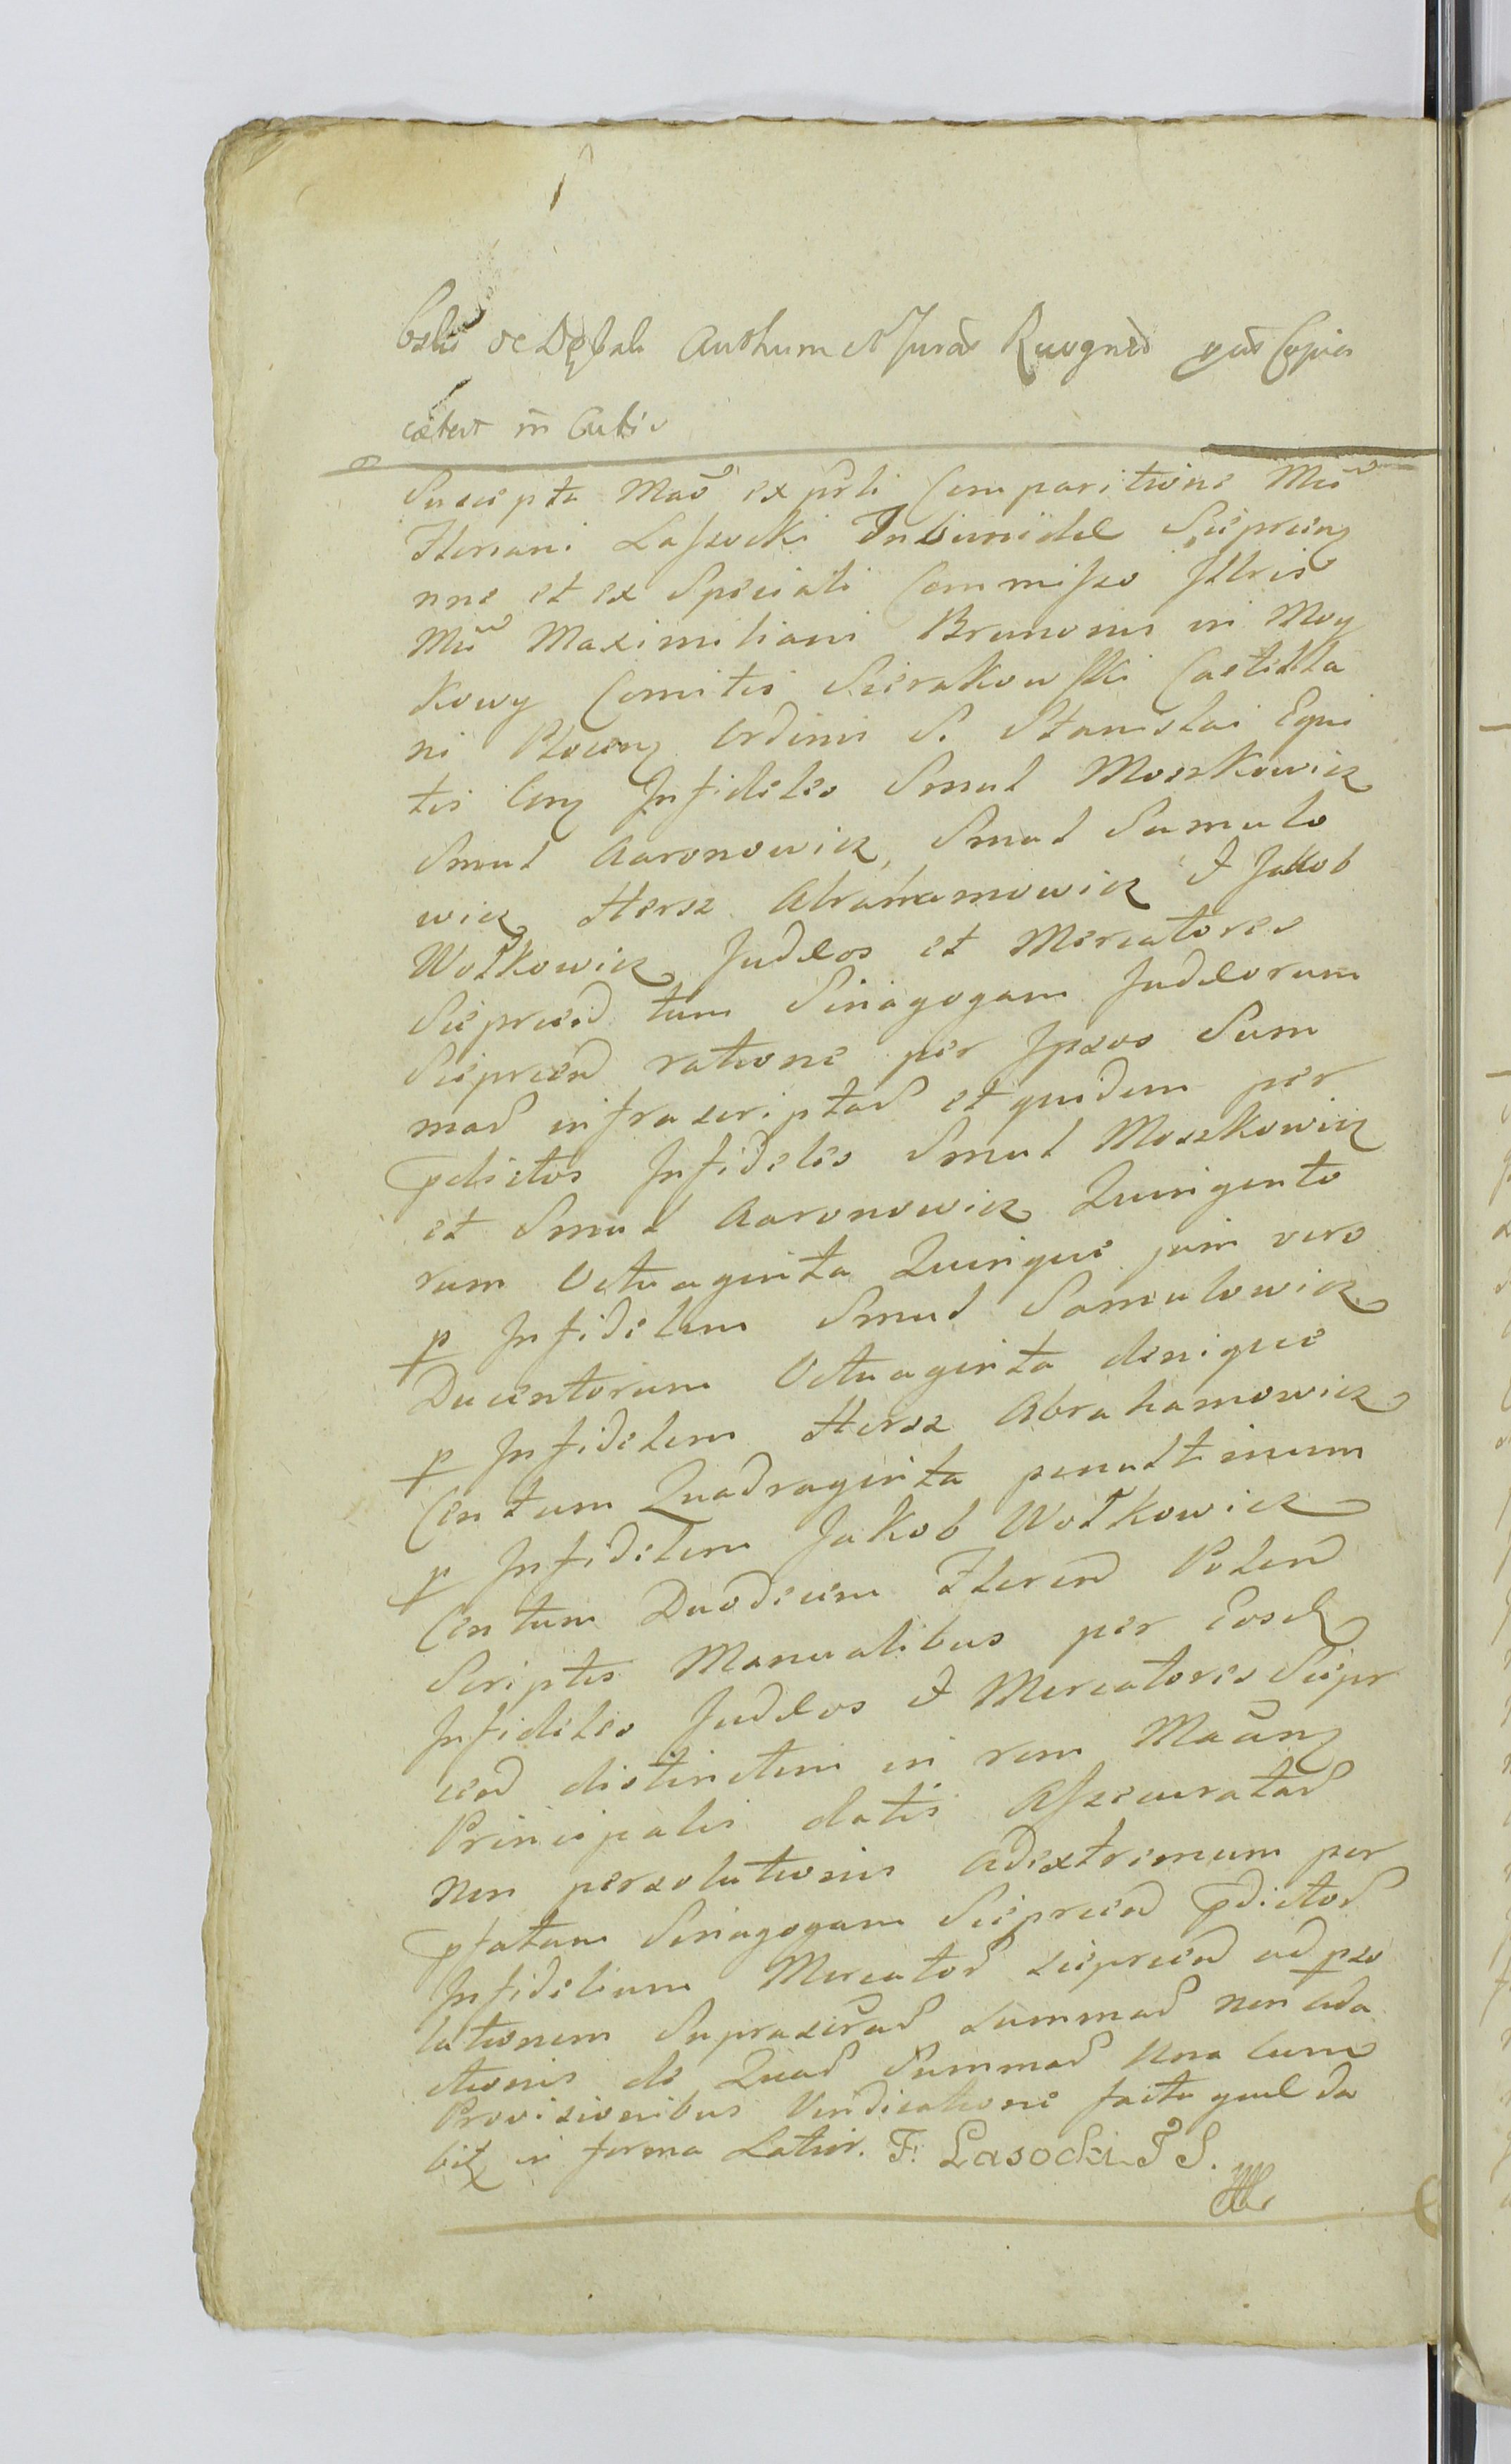 de Dębsk Authum et Juras Recognit
in Actis
Suscepta Mao ex psli Comparitione Mci
Floriani Lassocki Tribuni del Sieprceng
nne et ex Speciali Commisso Illris
Mci Maximiliani Brunonis in Moy
kowy Comitis Sierakowski Castella
ni Ploceng Ordinis S. Stanislai Equi
tis Cong Infideles Smul Moszkowicz
Smul Aaronowicz, Smul Samulo
wicz Hersz Abrahamowicz & Jakob
Wolkowicz Judæos et Mercatores
Sieprced tum Sinagogam Judæorum
Sieprced ratione per Ipsos Sum
mad infrascriptad et quidem per
pdictos Infideles Smul Moszkowicz
et Smul Aaronowicz Quingento
rum Octuaginta Quinque jam vero
p Infidelem Smul Samulowicz
Ducentorum Octuaginta denique
p Infidelem Hersz Abrahamowicz
Centum Quadraginta penultimum
p Infidelem Jakob Wolkowicz
Centum Duodecim Florend Polend
Scriptis Manualibus per Eosd
Infideles Judæos & Mercatores Siepr
ced distinctim in rem Maãng
Principalis datis Assecuratad
non persolutionis Adextremum per
pfatam Sinagogam Sieprced pdictod
Infidelium Mercatod Sieprced ad pso
lutionem Suprascrad Summad non Ada
ctionis de Quad Summad Una cum
Provisionibus Vindicatione facta quæ da
bit in forma Latior. F: Lasocki T S.